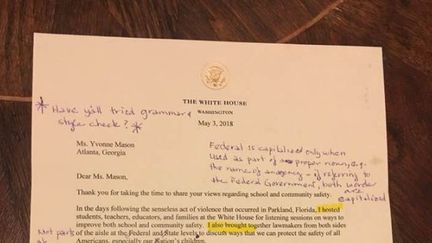 THE WHITE HOUSE
WASHINGTON
May 3, 2018
* Have y'all tried grammar &
style check? *
Ms. Yvonne Mason
Atlanta, Georgia
Federal is capitalized only when
used as part of a proper noun, e.g.
the name of an agency - if referring to
the Federal Government, both words
are
capitalized
Dear Ms. Mason,
Thank you for taking the time to share your views regarding school and community safety.
In the days following the senseless act of violence that occurred in Parkland, Florida, I hosted
students, teachers, educators, and families at the White House for listening sessions on ways to
improve both school and community safety. I also brought together lawmakers from both sides
Not part
of the aisle at the Federal and State levels to discuss ways that we can protect the safety of all
Americans, especially our Nation's children.